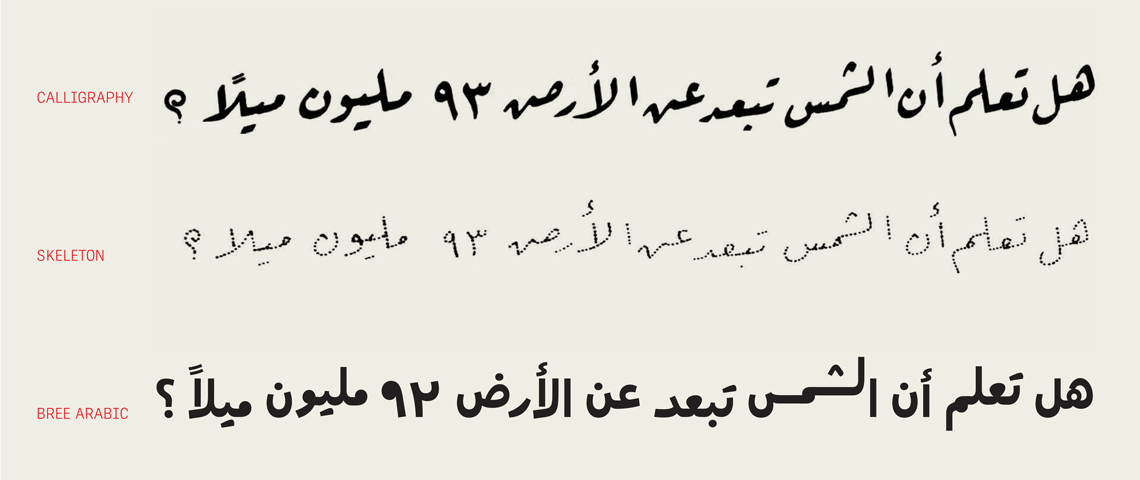 CALLIGRAPHY
هل تعلم أن الشمس تبعد عن الأرض ٩٣ مليون ميلاً ؟
SKELETON
هل تعلم أن الشمس تبعد عن الأرض ٩٣ مليون ميلا ؟
BREE ARABIC
هل تعلم أن الشمس تبعد عن الأرض ٩٢ مليون ميلاً ؟